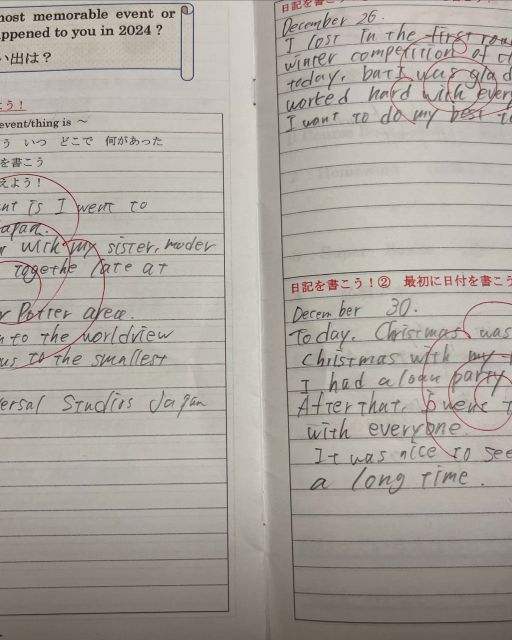 most memorable event or
appened to you in 2024 ?
い出は？
よう！
event/thing is ～
う いつ どこで 何があった
を書こう
えよう！
nt is I went to
Japan.
with my sister, moder
togethe late at
r Potter area.
to the worldview
us to the smallest
ersal Studios Japan
日記を書こ
December 26.
I lost in the first rou
winter competition of
today, but I was glad
worked hard with every
I want to do my best
日記を書こう！② 最初に日付を書こう
December 30.
Today. Christmas was
Christmas with my
I had a loan party
After that, I went
with everyone.
It was nice to see
a long time.